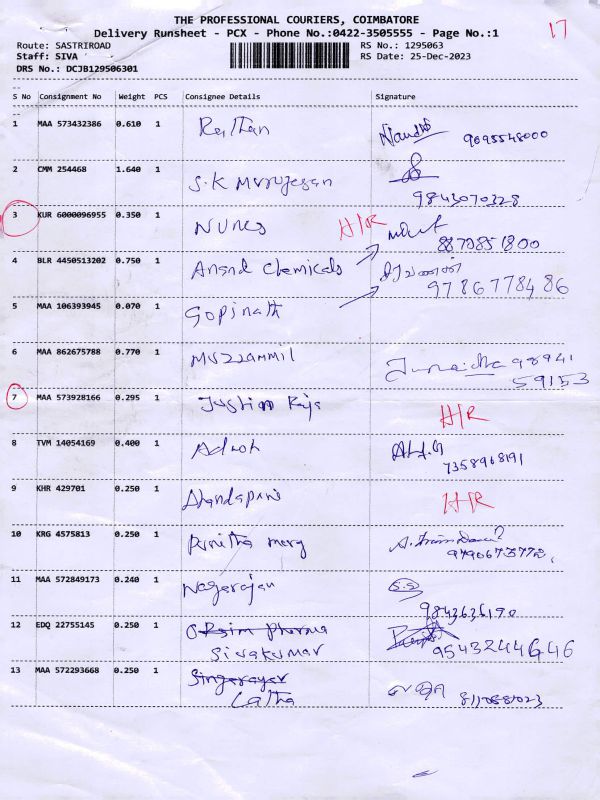 THE PROFESSIONAL COURIERS, COIMBATORE
17
Delivery Runsheet - PCX - Phone No.:0422-3505555 - Page No.:1
Route: SASTRIROAD RS No.: 1295063
Staff: SIVA RS Date: 25-Dec-2023
DRS No.: DCJB129506301
S No Consignment No Weight PCS Consignee Details Signature
1 MAA 573432386 0.610 1 9095548000
2 CMM 254468 1.640 1 S.K Murugesan
9843070328
3 KUR 6000096955 0.350 1 H/R
8870851800
4 BLR 4450513202 0.750 1 Anand Chemicals சரவணன்
9786778486
5 MAA 106393945 0.070 1 Gopinath
6 MAA 862675788 0.770 1 Muzzammil 98941
59153
7 MAA 573928166 0.295 1 Justin Raja H/R
8 TVM 14054169 0.400 1
7358968191
9 KHR 429701 0.250 1 H/R
10 KRG 4575813 0.250 1 Punitha
11 MAA 572849173 0.240 1 Nagarajan S.S
9843636190
12 EDQ 22755145 0.250 1 pharma
Sivakumar 9543244646
13 MAA 572293668 0.250 1 Singarayar லதா
Latha